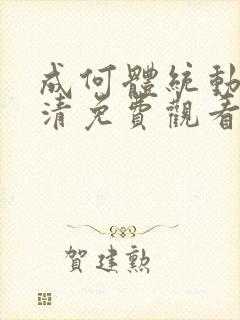 成何體統動
清免費觀看
賀建勲